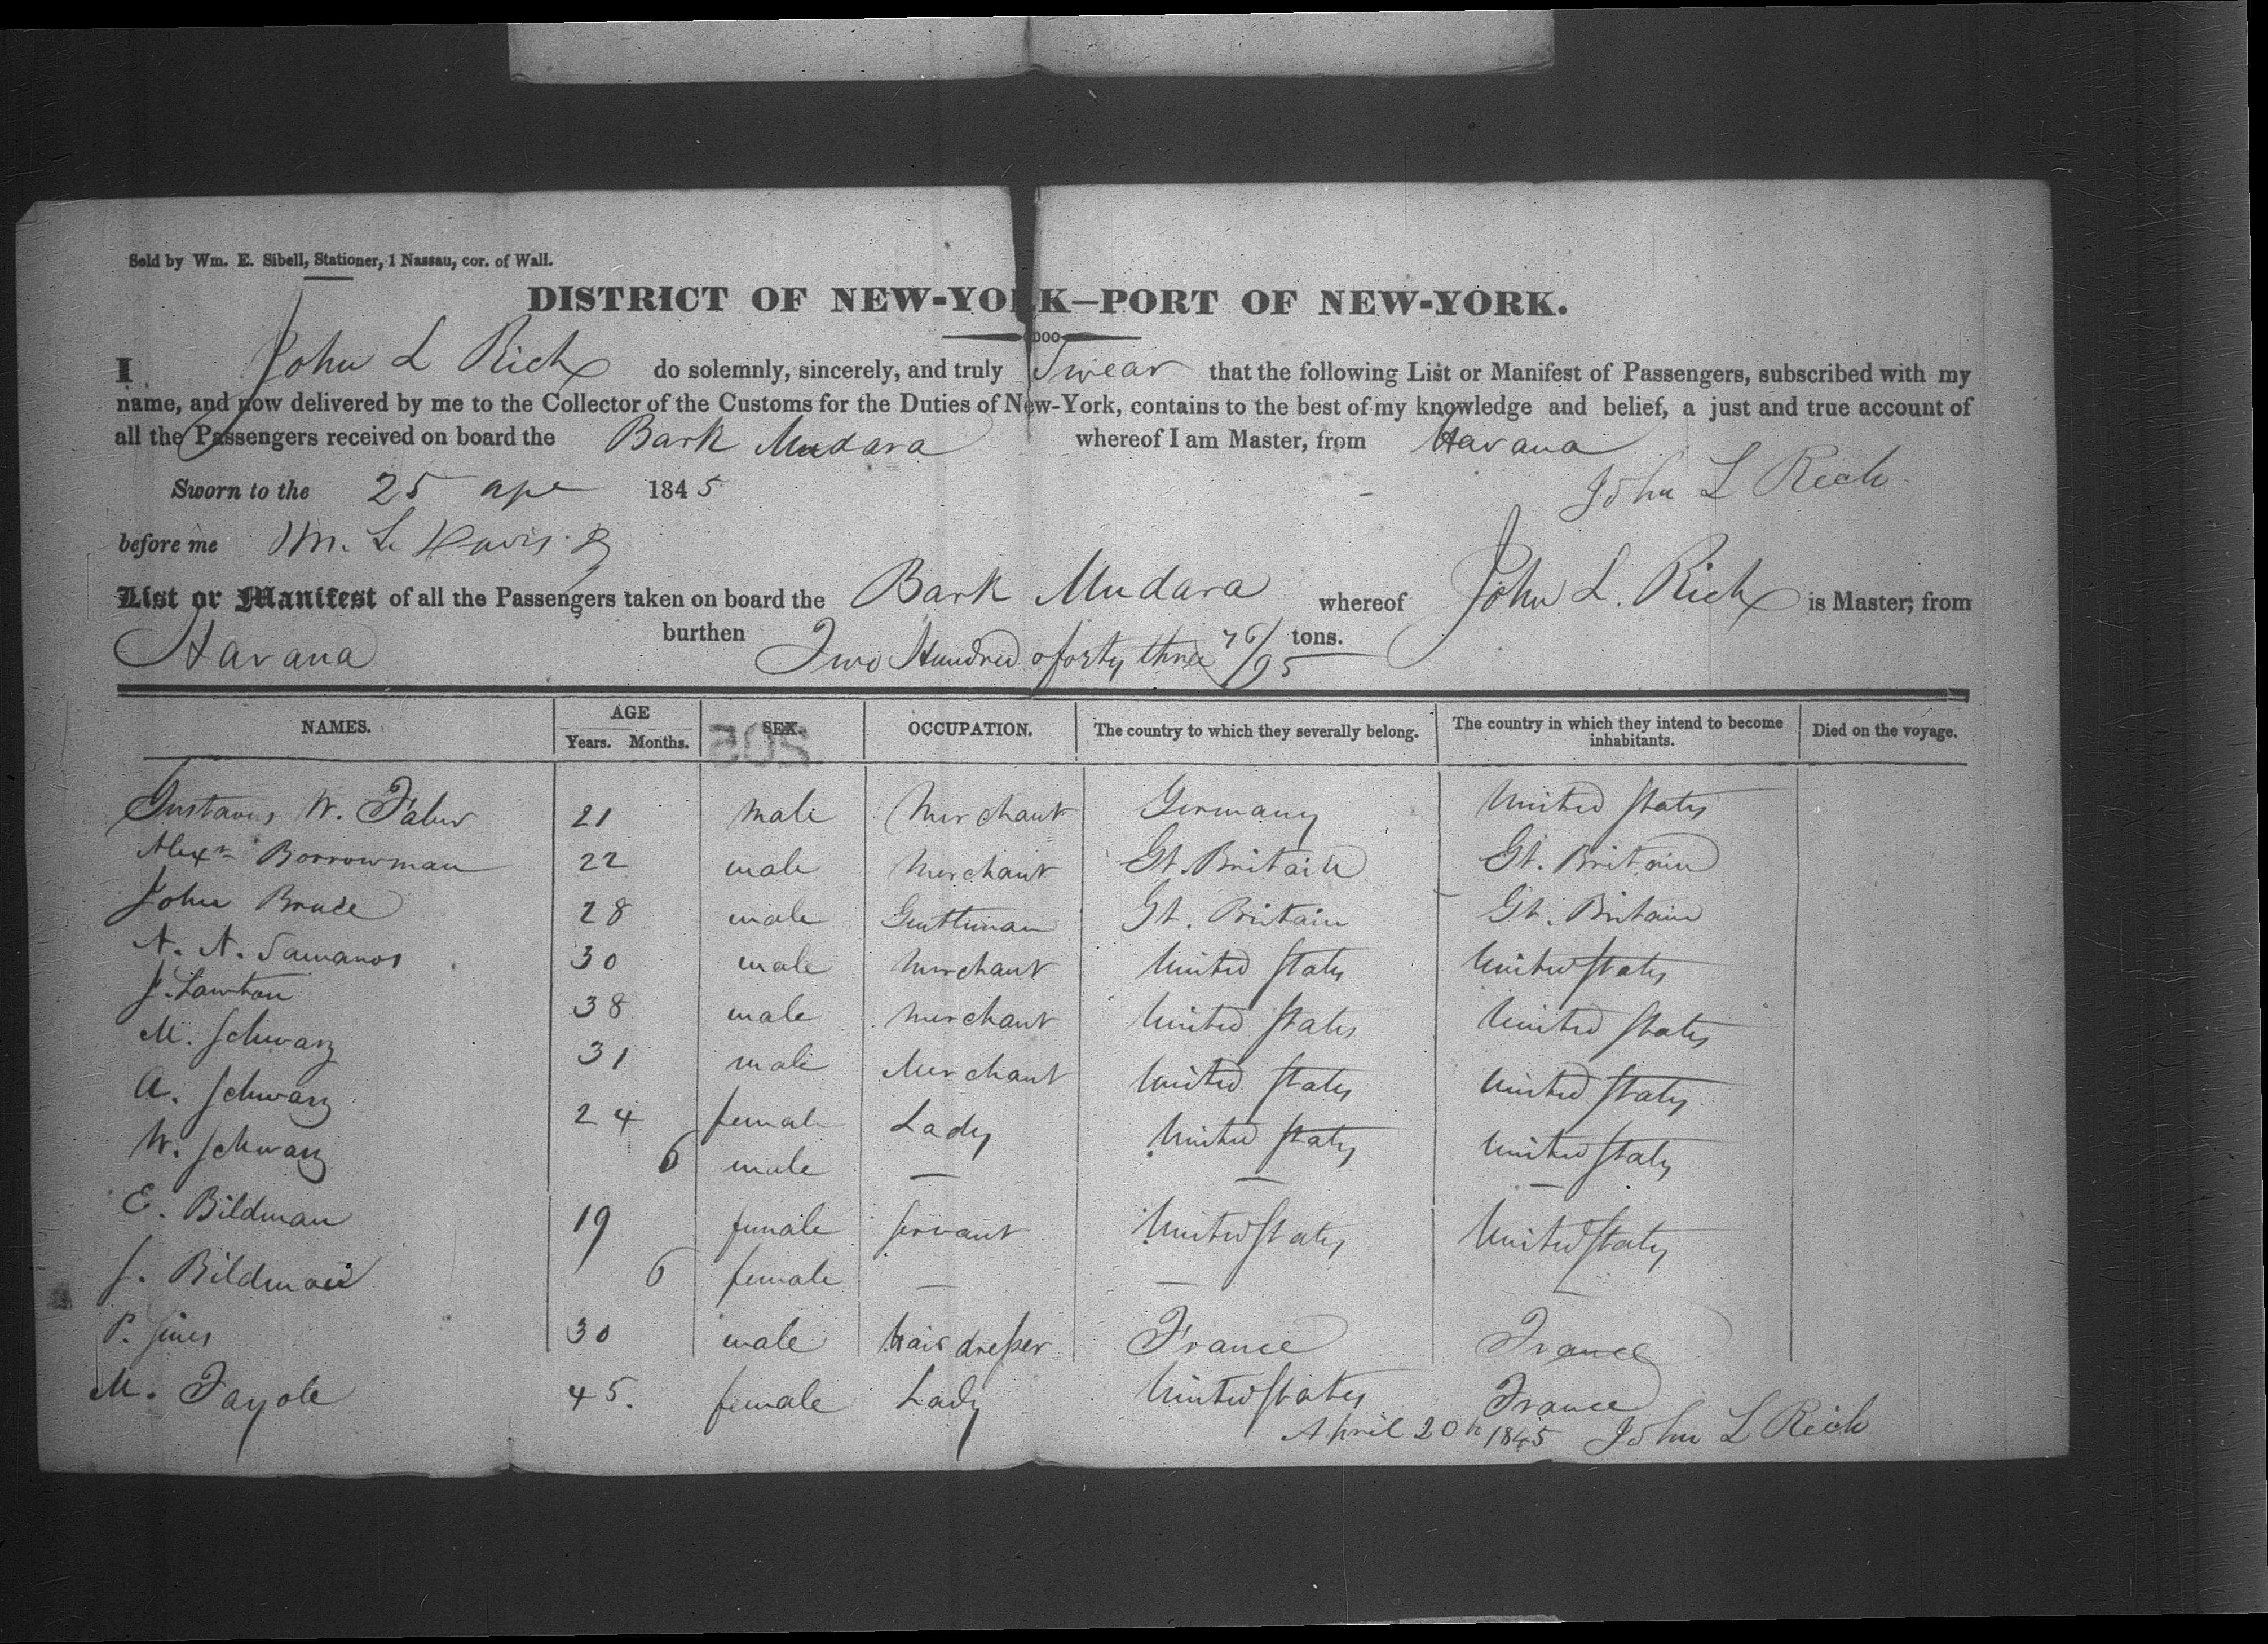 Sold by Wm. E. Sibell, Stationer, 1 Nassau, cor. of Wall.
DISTRICT OF NEW-YORK—PORT OF NEW-YORK.
I John L Rich do solemnly, sincerely, and truly Swear that the following List or Manifest of Passengers, subscribed with my
name, and now delivered by me to the Collector of the Customs for the Duties of New-York, contains to the best of my knowledge and belief, a just and true account of
all the Passengers received on board the Bark Mudara whereof I am Master, from Havana
Sworn to the 25 apl 1845 John L Rich
before me M. L. Davis
List or Manifest of all the Passengers taken on board the Bark Mudara whereof John L. Rich is Master, from
Havana burthen Two Hundred & forty three 76/95 tons.
NAMES. AGE Years. Months. SEX. OCCUPATION. The country to which they severally belong. The country in which they intend to become inhabitants. Died on the voyage.
205
Gustavus W. Faber 21 male Merchant Germany United States
Alexr Borrowman 22 male Merchant Gt. Britain Gt. Britain
John Bruce 28 male Gentleman Gt. Britain Gt. Britain
A. A. Samanos 30 male Merchant United States United States
J. Lawton 38 male Merchant United States United States
M. Schwarz 31 male Merchant United States United States
A. Schwarz 24 female Lady United States United States
W. Schwarz 6 male — — —
E. Bildman 19 female Servant United States United States
J. Bildman 6 female — — —
P. 30 male hair dresser France France
M. Fayole 45. female Lady United States France
April 20th 1845 John L Rich